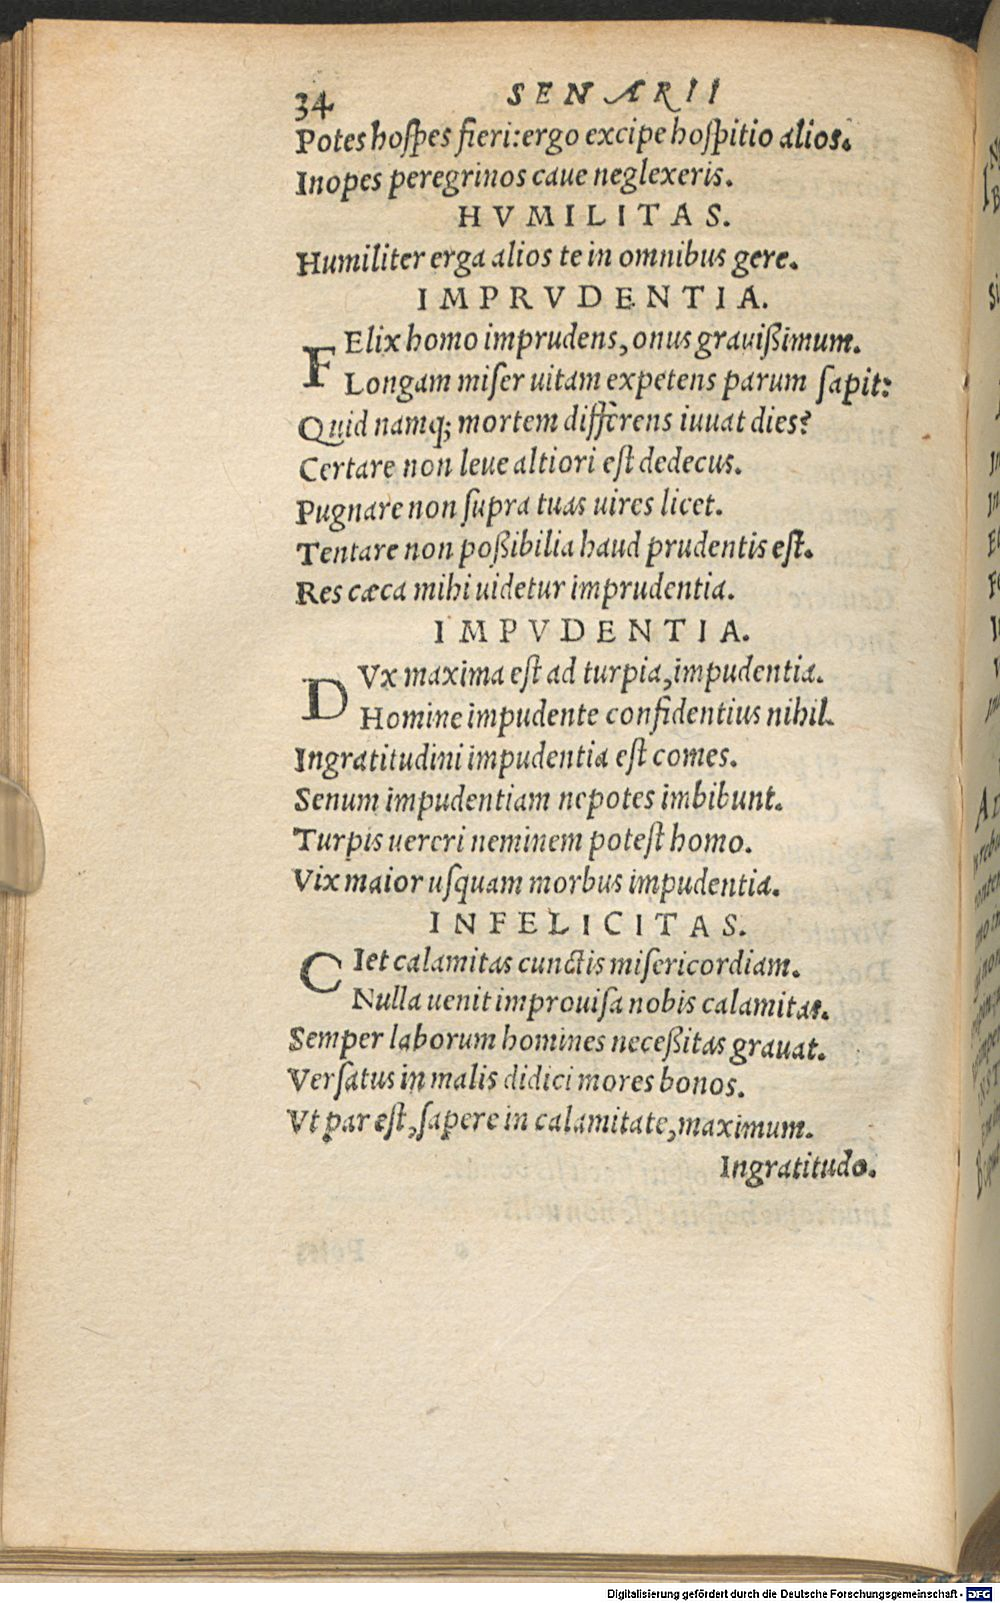 34 SENARII
Potes hoſpes fieri: ergo excipe hoſpitio alios.
Inopes peregrinos caue neglexeris.
HVMILITAS.
Humiliter erga alios te in omnibus gere.
IMPRVDENTIA.
FElix homo imprudens, onus grauißimum.
Longam miſer uitam expetens parum ſapit:
Quid namq; mortem differens iuuat dies?
Certare non leue altiori eſt dedecus.
Pugnare non ſupra tuas uires licet.
Tentare non poßibilia haud prudentis eſt.
Res cæca mihi uidetur imprudentia.
IMPVDENTIA.
DVx maxima eſt ad turpia, impudentia.
Homine impudente confidentius nihil.
Ingratitudini impudentia eſt comes.
Senum impudentiam nepotes imbibunt.
Turpis uereri neminem poteſt homo.
Vix maior uſquam morbus impudentia.
INFELICITAS.
CIet calamitas cunctis miſericordiam.
Nulla uenit improuiſa nobis calamitas.
Semper laborum homines neceßitas grauat.
Verſatus in malis didici mores bonos.
Vt par eſt, ſapere in calamitate, maximum.
Ingratitudo.
Digitalisierung gefördert durch die Deutsche Forschungsgemeinschaft - DFG